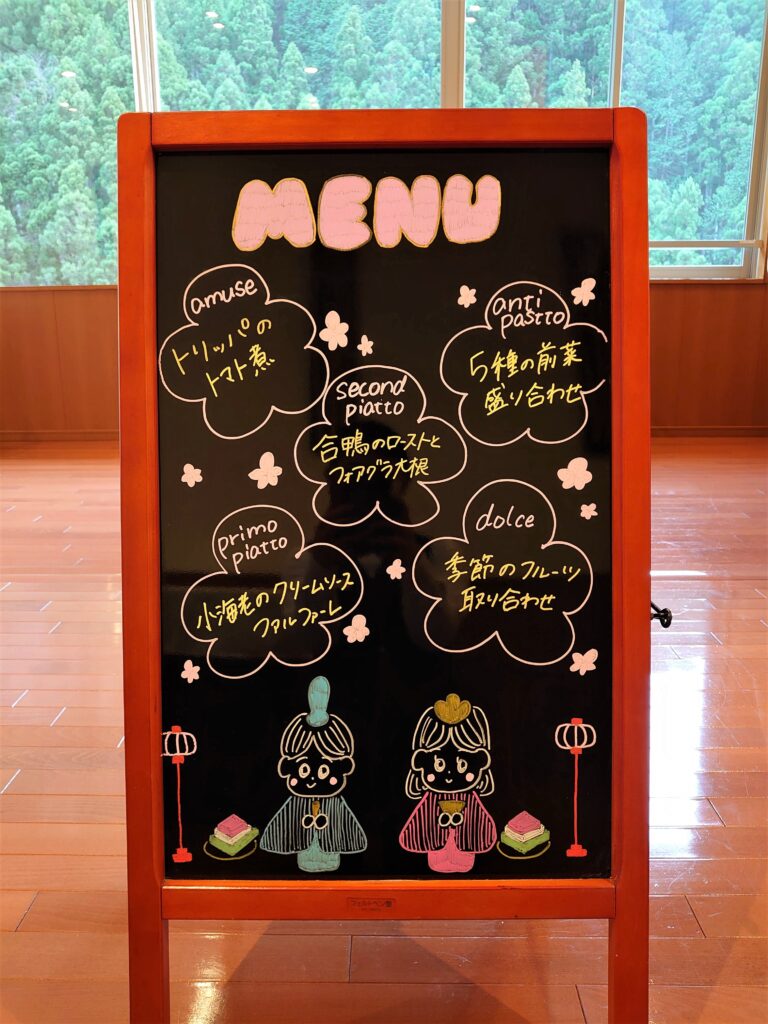 MENU
amuse
トリッパの
トマト煮
anti
pastto
5種の前菜
盛り合わせ
second
piatto
合鴨のローストと
フォアグラ大根
primo
piatto
小海老のクリームソース
ファルファーレ
dolce
季節のフルーツ
取り合わせ